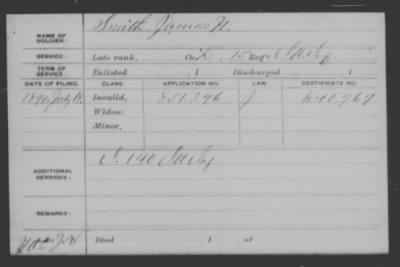 NAME OF SOLDIER: Smith, James N.
SERVICE: Late rank, Co. K, 15 Reg't Inf.
TERM OF SERVICE: Enlisted , 1 Discharged , 1
DATE OF FILING. CLASS. APPLICATION NO. LAW. CERTIFICATE NO.
1890, July 18 Invalid, 851.396 J 640.767
Widow,
Minor,
ADDITIONAL SERVICES: 140
REMARKS:
Died , 1 , at